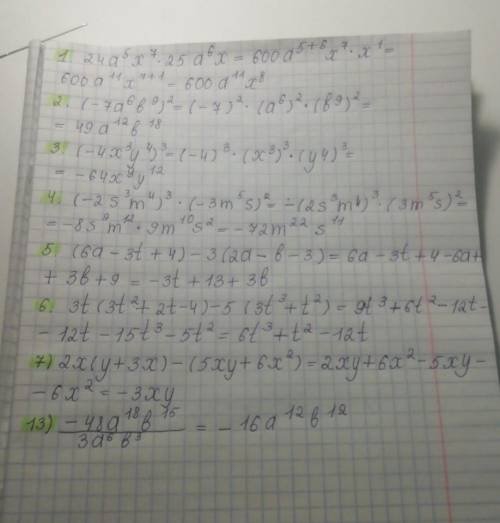 1. 24a⁵x⁷·25a⁶x = 600a⁵⁺⁶x⁷·x¹=
600a¹¹x⁷⁺¹= 600a¹¹x⁸
2. (-7a⁶b⁹)²=(-7)²·(a⁶)²·(b⁹)²=
= 49a¹²b¹⁸
3. (-4x³y⁴)³=(-4)³·(x³)³·(y4)³=
= -64x⁹y¹²
4. (-2s³m⁴)³·(-3m⁵s)²= -(2s³m⁴)³·(3m⁵s)²=
= -8s⁹m¹²·9m¹⁰s²= -72m²²s¹¹
5. (6a-3t+4)-3(2a-b-3)=6a-3t+4-6a+
+ 3b+9 = -3t+13+3b
6. 3t(3t²+2t-4)-5(3t³+t²)=9t³+6t²-12t-
-12t-15t³-5t²=6t³+t²-12t
7) 2x(y+3x)-(5xy+6x²)=2xy+6x²-5xy-
-6x²= -3xy
13) -48a¹⁸b¹⁵ / 3a⁶b³ = -16a¹²b¹²